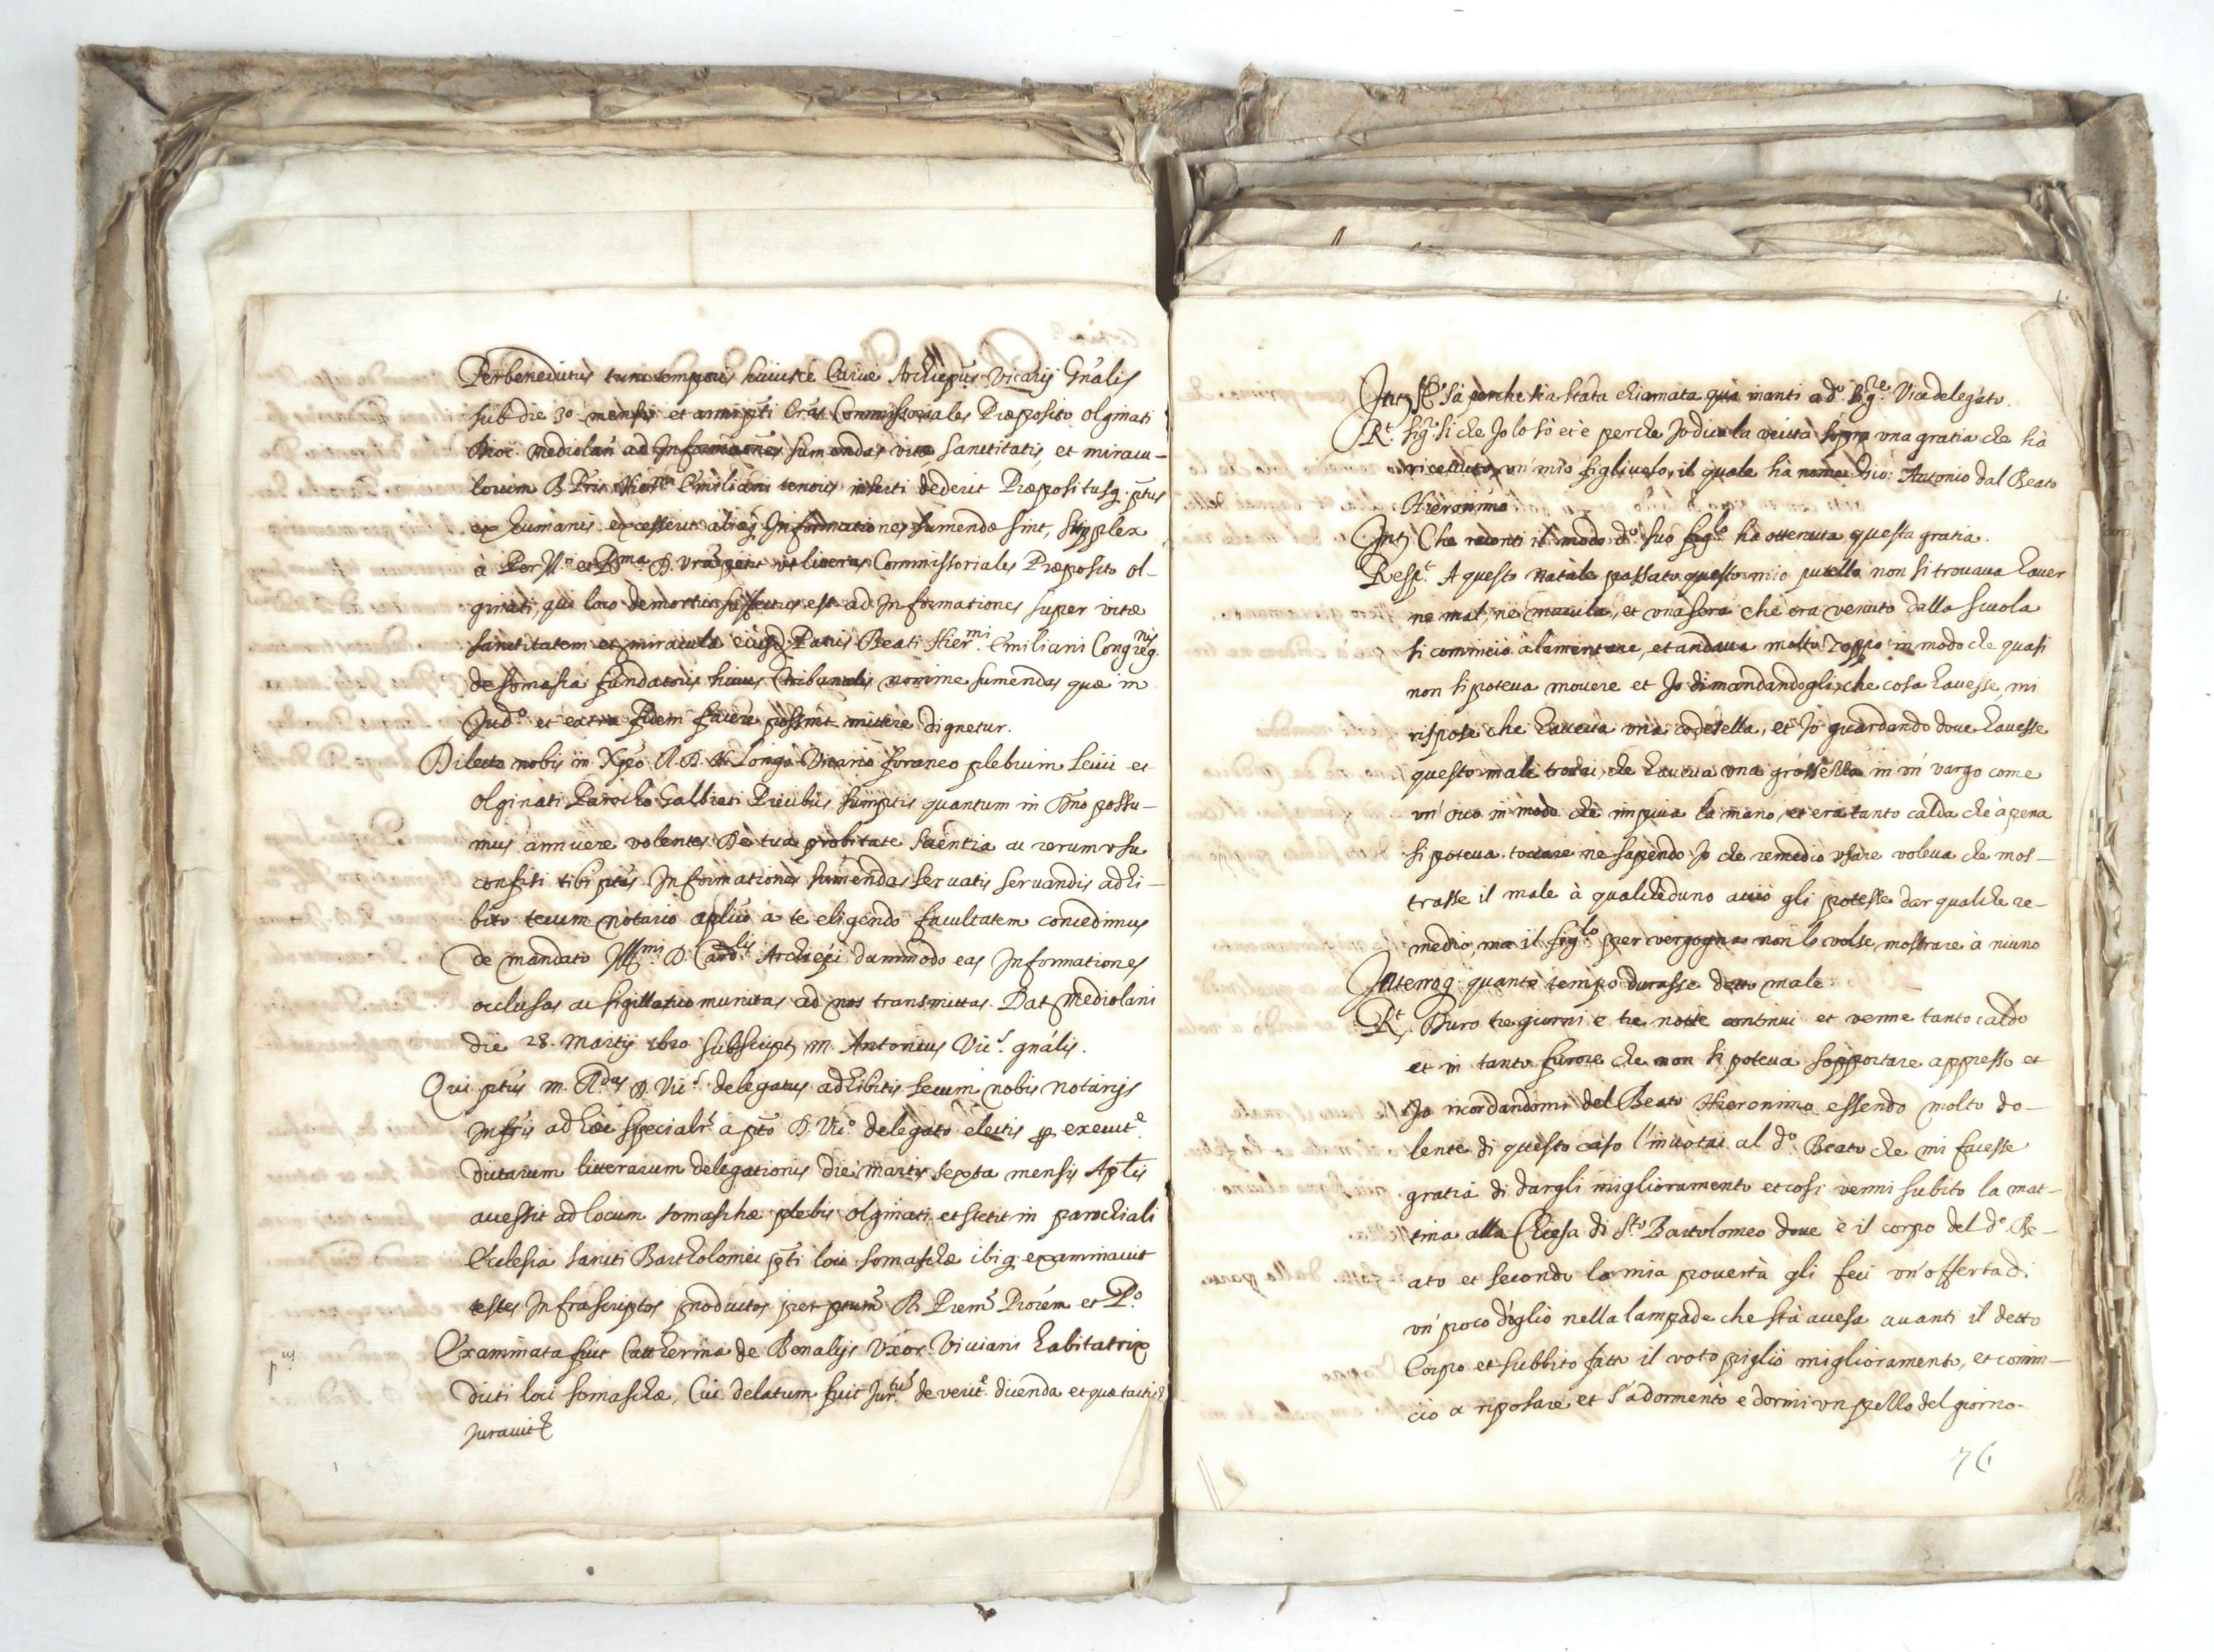 Perbenedictus tunc temporis huiusce Curiæ Archiepus Vicarij Gnalis
sub die 30 mensis et anni pti lras Commissoriales Præposito olginati
Dioc. Mediolan ad Informationes sumendas vitæ sanctitatis, et miracu-
lorum B. Pris Hiermi Emiliani tenoris inserti dederit Præpositusq. ptus
ex humanis excesserit aliæq Informationes sumendæ sint, supplex
à Per Ill. et Rma D. Vra petit ut literas Commissoriales Præposito ol-
ginati qui loco demortui suffectus est ad Informationes super vitæ
sanctitatem et miracula eiusd. Patris Beati Hiermi Emiliani Congregnis
de somasca fundatoris huius Tribunalis nomine sumendas quæ in
Judo et extra fidem facere possint mittere dignetur.
Dilecto nobis in Xpo R. D. Longo Vicario foraneo plebium Leuci et
olginati Parocho Galbiati Precibus sumptis quantum in Dno possu-
mus annuere volentes. De tua probitate scientia ac rerum usu
confisi tibi ptas Informationes sumendas servatis servandis adhi-
bito tecum notario aplico a te eligendo facultatem concedimus
de mandato Illmi D. Cardlis Archiepi dummodo eas Informationes
occlusas ac sigillatio munitas ad nos transmittas. Dat. Mediolani
die 28. Martij 1620 subscript. m. Antonius Vic. gnalis.
Qui ptus m. Rdus D. Vic. delegatus adhibitis secum nobis notarijs
Infris ad hæc specialr a pto D. Vico delegato electis p execute
dictarum litterarum delegationis die martis sexta mensis Aplis
accessit ad locum somaschæ plebis olginati et stetit in parochiali
Ecclesia sancti Bartholomei pti loci somaschæ ibiq. examinavit
testes Infrascriptos productos per ptum R. Prem Priorem et Po
pus
Examinata fuit Catherina de Bonalijs Uxor Viviani habitatrix
dicti loci somaschæ, Cui delatum fuit Jurtus de verite dicenda et quæ tactis
Juravit
Intz Se sà perche sia stata chiamata quà inanti ad. Sigre Vicedelegato.
Rt. Sigr. si che Jo lo sò et è perche Jo dica la verità sopra una gratia che hà
ricevuto un mio figliuolo, il quale ha nome Gio: Antonio dal Beato
Hieronimo
Intz Che raconti il modo do. suo figlo ha ottenuta questa gratia.
Respt. A questo natale passato questo mio putello non si trovava haver
ne mal, ne macula, et una sera che era venuto dalla scuola
si cominciò à lamentare, et andava molto zoppo in modo che quasi
non si poteva movere et Jo dimandandogli, che cosa havesse, mi
rispose che haveva una codesella, et Jo guardando dove havesse
questo male trovai, che haveva una grossella in un vargo come
un ovo in modo che impiva la mano, et era tanto calda che àpena
si poteva toccare ne sapendo Jo che remedio usare voleva che mos-
trasse il male à qualcheduno acciò gli potesse dar qualche re-
medio, ma il figlo per vergogna non lo volse mostrare à niuno
Interrog. quanto tempo durasse detto male
Rt. Duro tre giorni e tre notte continui et venne tanto caldo
et in tanto furore che non si poteva sopportare appresso et
Jo ricordandomi del Beato Hieronimo essendo molto do-
lente di questo caso l'invotai al do. Beato che mi facesse
gratia di dargli miglioramento et cosi venni subito la mat-
tina alla Chiesa di Sto Bartolomeo dove è il corpo del do. Be-
ato et secondo la mia povertà gli feci un'offerta di
un poco d'oglio nella lampade che stà accesa avanti il detto
Corpo et subbito fatto il voto piglió miglioramento, et comin-
ciò a riposare et s'adormentò e dormi un pezzo del giorno.
76